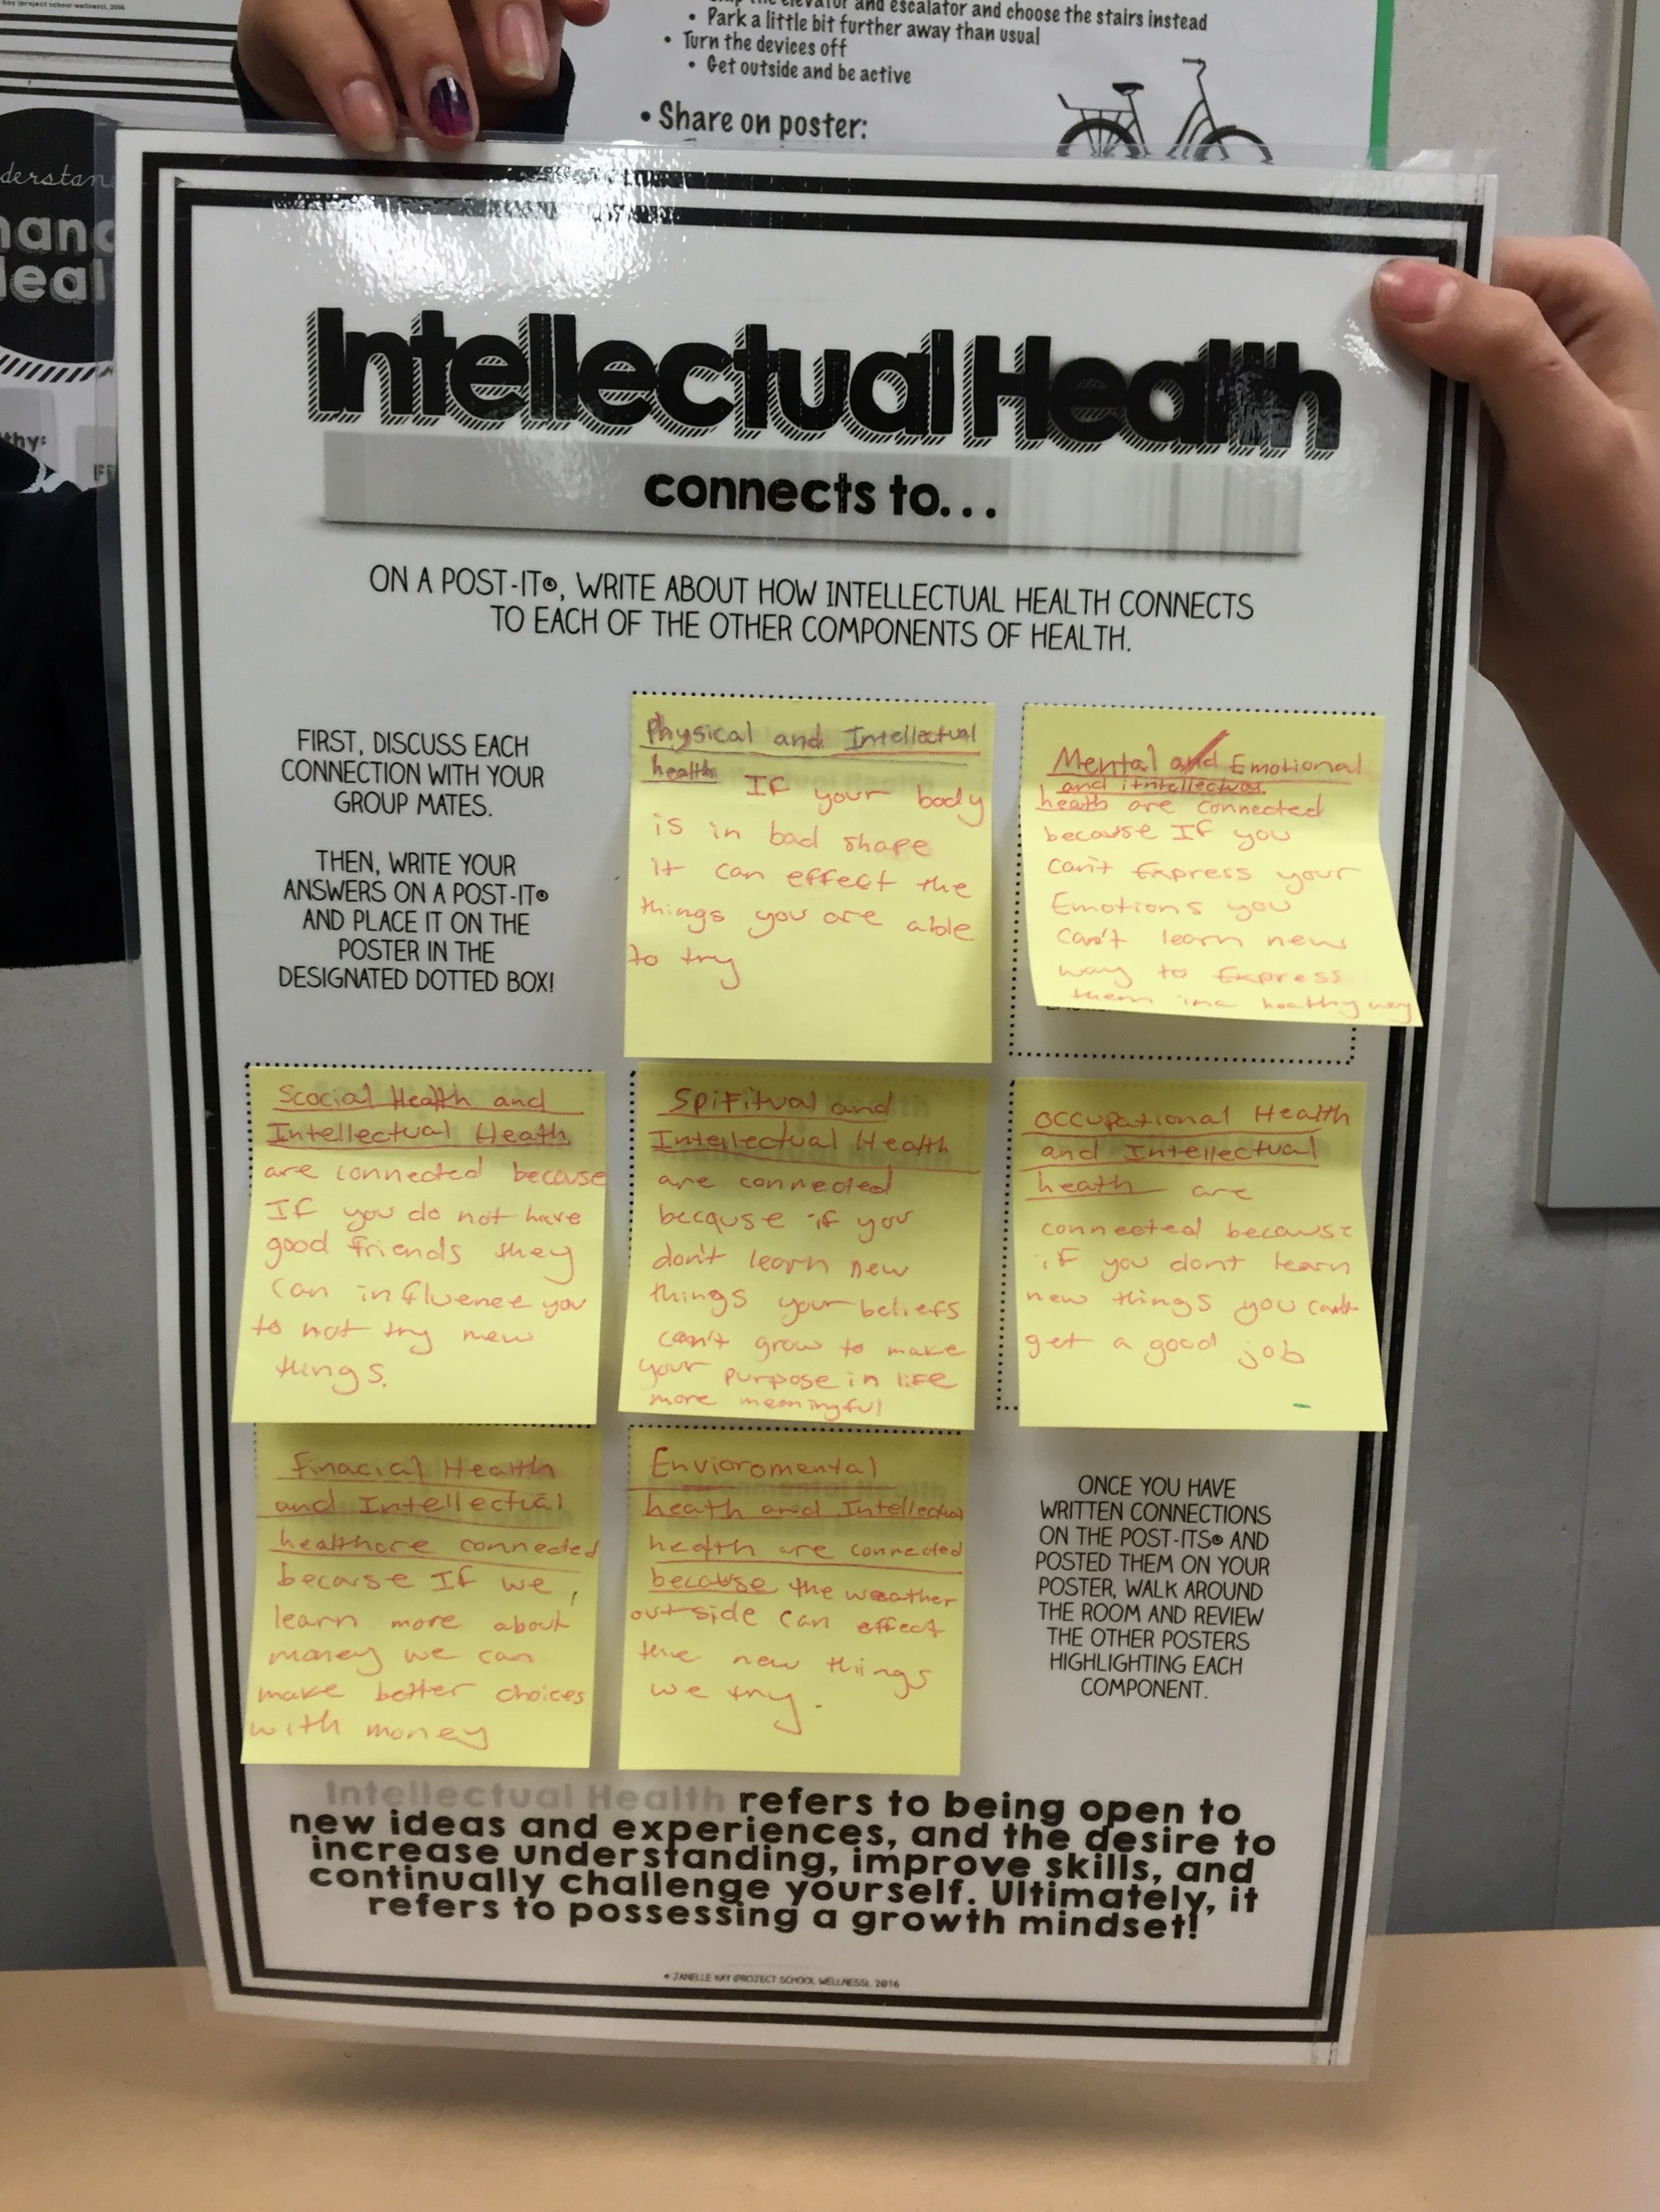 Kay (project school wellness), 2016
and escalator and choose the stairs instead
• Park a little bit further away than usual
• Turn the devices off
• Get outside and be active
• Share on poster:
Intellectual Health
connects to...
ON A POST-IT®, WRITE ABOUT HOW INTELLECTUAL HEALTH CONNECTS
TO EACH OF THE OTHER COMPONENTS OF HEALTH.
FIRST, DISCUSS EACH
CONNECTION WITH YOUR
GROUP MATES.
THEN, WRITE YOUR
ANSWERS ON A POST-IT®
AND PLACE IT ON THE
POSTER IN THE
DESIGNATED DOTTED BOX!
Physical and Intellectual
health If your body
is in bad shape
it can effect the
things you are able
to try
Mental and Emotional
and itntellectual
heath are connected
because If you
can't Express your
Emotions you
can't learn new
way to Express
them in a healthy way
Scocial Health and
Intellectual Heath
are connected because
If you do not have
good friends they
can influence you
to not try new
things.
Spifitual and
Intellectual Health
are connected
because if you
don't learn new
things your beliefs
can't grow to make
your purpose in life
more meaningful
Occupational Health
and Intellectual
heath are
connected because
if you dont learn
new things you cant
get a good job
Finacial Health
and Intellectual
health are connected
because If we
learn more about
money we can
make better choices
with money
Envioromental
heath and Intellectual
health are connected
because the weather
outside can effect
the new things
we try.
ONCE YOU HAVE
WRITTEN CONNECTIONS
ON THE POST-ITS® AND
POSTED THEM ON YOUR
POSTER, WALK AROUND
THE ROOM AND REVIEW
THE OTHER POSTERS
HIGHLIGHTING EACH
COMPONENT.
Intellectual Health refers to being open to
new ideas and experiences, and the desire to
increase understanding, improve skills, and
continually challenge yourself. Ultimately, it
refers to possessing a growth mindset!
© JANELLE KAY (PROJECT SCHOOL WELLNESS), 2016